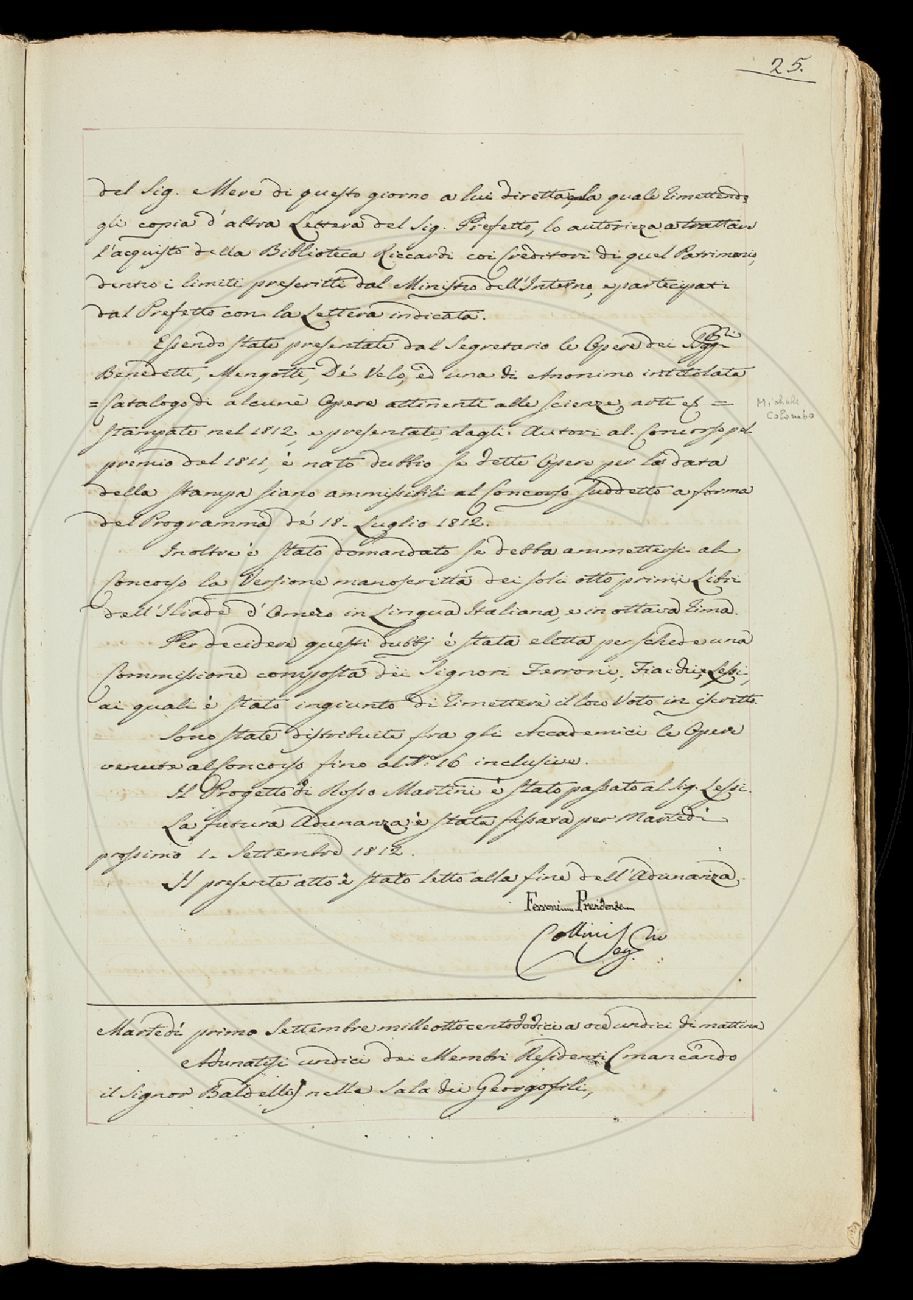 25.
del Sig. Mere di questo giorno a lui diretta, la quale rimettendo
gli copia d'altra Lettera del Sig. Prefetto, lo autorizza a trattare
l'acquisto della Biblioteca Riccardi coi Creditori di quel Patrimonio,
dentro i limiti prescritti dal Ministro dell'Interno, e partecipati
dal Prefetto con la Lettera indicata.
Essendo state presentate dal Segretario le Opere dei
Benedetti, Mengotti, Dé Velo, ed una di Anonimo intitolata
= Catalogo di alcune Opere attinenti alle scienze, arti ec =
Michele
Colombo
stampate nel 1812, e presentate dagli Autori al Concorso pel
premio del 1811, è nato dubbio se dette Opere per la data
della stampa siano ammissibili al Concorso suddetto a forma
del Programma dé 18. Luglio 1812.
Inoltre è stato domandato se debba ammettersi al
Concorso la Versione manoscritta dei soli otto primi Libri
dell'Iliade d'Omero in Lingua Italiana, e in ottava rima.
Per decidere questi dubbj è stata eletta per schede una
Commissione composta dei Signori Ferroni, Fiacchi, e Lessi,
ai quali è stato ingiunto di rimettere il loro Voto in iscritto.
Sono state distribuite fra gli Accademici le Opere
venute al Concorso fino al N.o 16 inclusive.
Il Progetto di Rosso Martini è stato passato al Sig. Lessi.
La futura Adunanza è stata fissata per Martedì
prossimo 1. Settembre 1812.
Il presente atto è stato letto alla fine dell'Adunanza.
Ferroni Presidente
Collini Seg.rio
Martedì primo Settembre milleottocentododici a ore undici di mattina
Adunatisi undici dei Membri Residenti (mancando
il Signor Baldelli) nella Sala dei Georgofili,